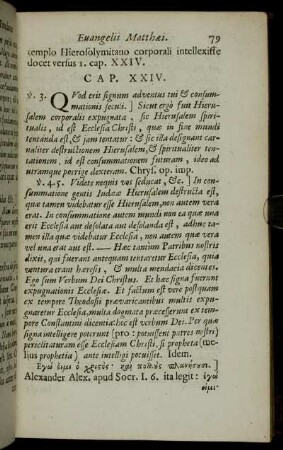 Euangelii Matthæi. 79
templo Hierosolymitano corporali intellexisse
docet versus 1. cap. XXIV.
CAP. XXIV.
℣. 3. QVod erit signum adventus tui & consum-
mationis seculi. ] Sicut ergò fuit Hieru-
salem corporalis expugnata, sic Hierusalem spiri-
tualis, id est Ecclesia Christi, quæ in fine mundi
tentanda est, & jam tentatur: & sic illa designant car-
naliter destructionem Hierusalem, & spiritualiter ten-
tationem, id est consummationem futuram, ideo ad
utramque perrigè dexteram. Chrys. op. imp.
℣. 4. 5. Videte nequis vos seducat, &c. ] In con-
summatione gentis Iudææ Hierusalem destructa est,
quæ tamen videbatur esse Hierusalem, non autem vera
erat. In consummatione autem mundi non ea quæ una
erit Ecclesia aut desolata aut desolanda est, adhuc ta-
men illa quæ videbatur Ecclesia, non autem quæ vera
vel una erat aut est. — Hæc tantùm Patribus nostris
dixit, qui fuerant antequam tentaretur Ecclesia, quia
ventura erant hæreses, & multa mendacia dicentes.
Ego sum Verbum Dei Christus. Et hæc signa fuerant
expugnationis Ecclesiæ. Et factum est verè postquam
ex tempore Theodosii prævaricantibus multis expu-
gnaretur Ecclesia, multa dogmata præcesserunt ex tem-
pore Constantini dicentia: hoc est verbum Dei. Per quæ
signa intelligere poterunt (pro: potuissent patres nostri)
periclitaturam esse Ecclesiam Christi, si propheta (me-
lius prophetia) ante intelligi potuisset. Idem.
Ἐγώ εἰμι ὁ χριστός· καὶ πολλοὺς πλανήσουσι. ]
Alexander Alex. apud Socr. I. 6. ita legit: ἐγώ
εἰμι·